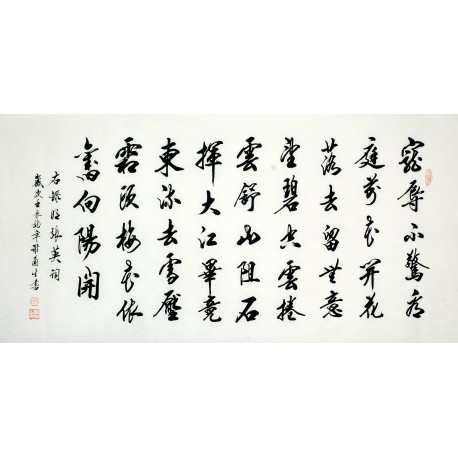 寵辱不驚看
庭前花開花
落去留無意
望碧空雲捲
雲舒山阻石
揮大江畢竟
東流去雪壓
霜欺梅花依
舊向陽開
右錄明張英詞
歲次壬辰秋年